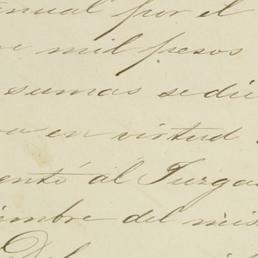 nual por el
mil pesos
sumas se di
en virtud
entó al Juzga
iembre del mis